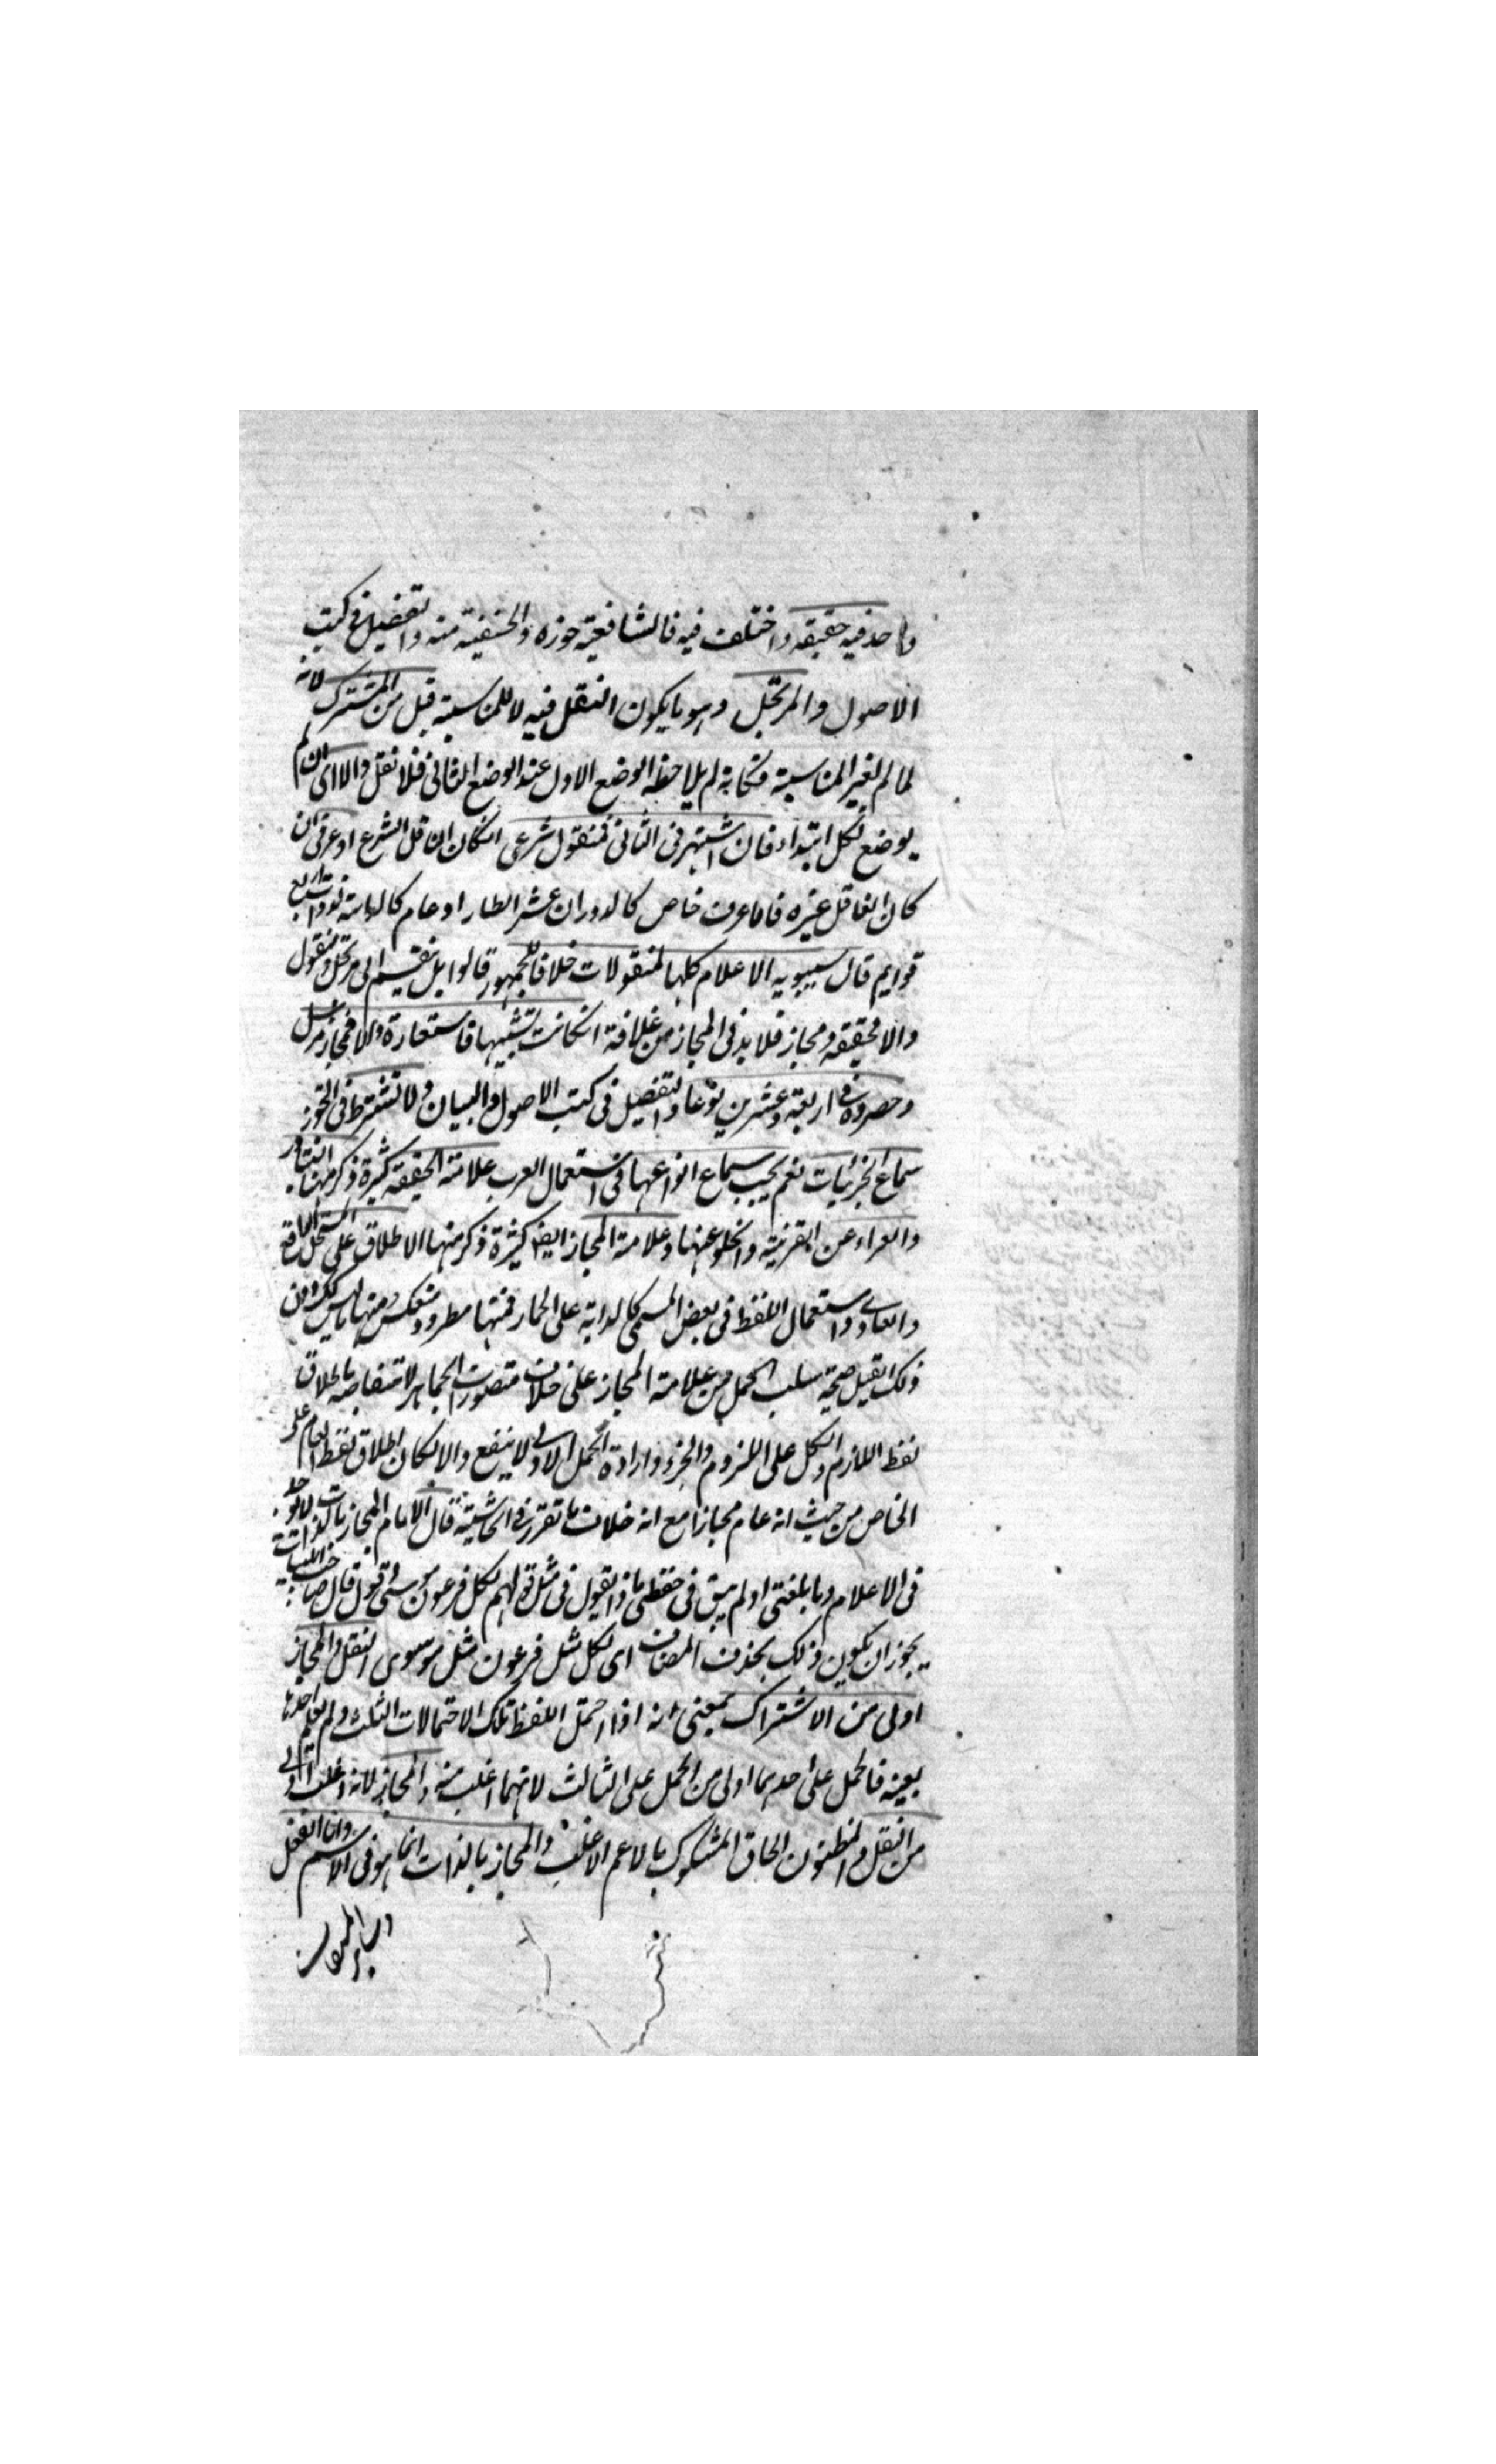 واحد فيه حقيقه واختلف فيه فالشافعية جوزه والحنفية منعه والتفصيل فى كتب
الاصول والمرتجل وهو ما يكون النقل فيه لا للمناسبة قيل من المشترك لانه
لما لم لغير المناسبة فكانه لم يلاحظ الوضع الاول عند الوضع الثانى فلا نقل والا اى ان لم
يوضع لكل ابتداء فان اشتهر فى الثانى فمنقول شرعى انكان الناقل الشرع او عرفى ان
كان الناقل غيره فاما عرف خاص كالدوران عشر النظار او عام كالدابة لذوات اربع
قوايم قال سيبويه الاعلام كلها لمنقولات خلافا للجمهور قالوا بل ينقسم الى مرتجل ومنقول
والا فحقيقه ومجاز فلا بد فى المجاز من علاقة انكانت تشبيها فاستعارة والا فمجاز مرسل
وحصروه فى اربعة وعشرين نوعا والتفصيل فى كتب الاصول والبيان ولا تشترط فى التجوز
سماع الجزئيات نعم يجب سماع انواعها فى استعمال العرب علامة الحقيقه كثيرة ذكر منها التبادر
والعراء عن القرينة والخلو عنها وعلامة المجاز ايضا كثيرة ذكر منها الاطلاق على المستحيل
والعادى واستعمال اللفظ فى بعض المسمى كالدابة على الحمار فمنها مطرد ومنعكس ومنها ما ليس كك ودون
ذلك لقيل صحة سلب الحمل من علامة المجاز على خلاف متصورات الجماهير لانتقاضه باطلاق
لفظ اللازم والكل على الملزوم والجزء وارادة الحمل الاولى لا ينفع والا لكان اطلاق لفظ العام على
الخاص من حيث انه عام مجازا مع انه خلاف ما تقرر فى الحاشية قال الامام المجاز بالذات لا يوجد
فى الاعلام وما بلغنى او لم يبق فى حفظى ماذا يقول فى مثل قولهم لكل فرعون موسى وقول قال صاحب
يجوز ان يكون ذلك بحذف المضاف اى لكل مثل فرعون مثل موسى النقل والمجاز
اولى من الاشتراك بمعنى انه اذا احتمل اللفظ تلك الاحتمالات الثلث ولم يعلم احدها
بعينه فالحمل على احدهما اولى من الحمل على الثالث لانهما اغلب منه والمجاز لانه اغلب اولى
من النقل والمظنون الحاق المشكوك بالاعم الاغلب والمجاز بالذات انما هو فى الاسم واما الفعل